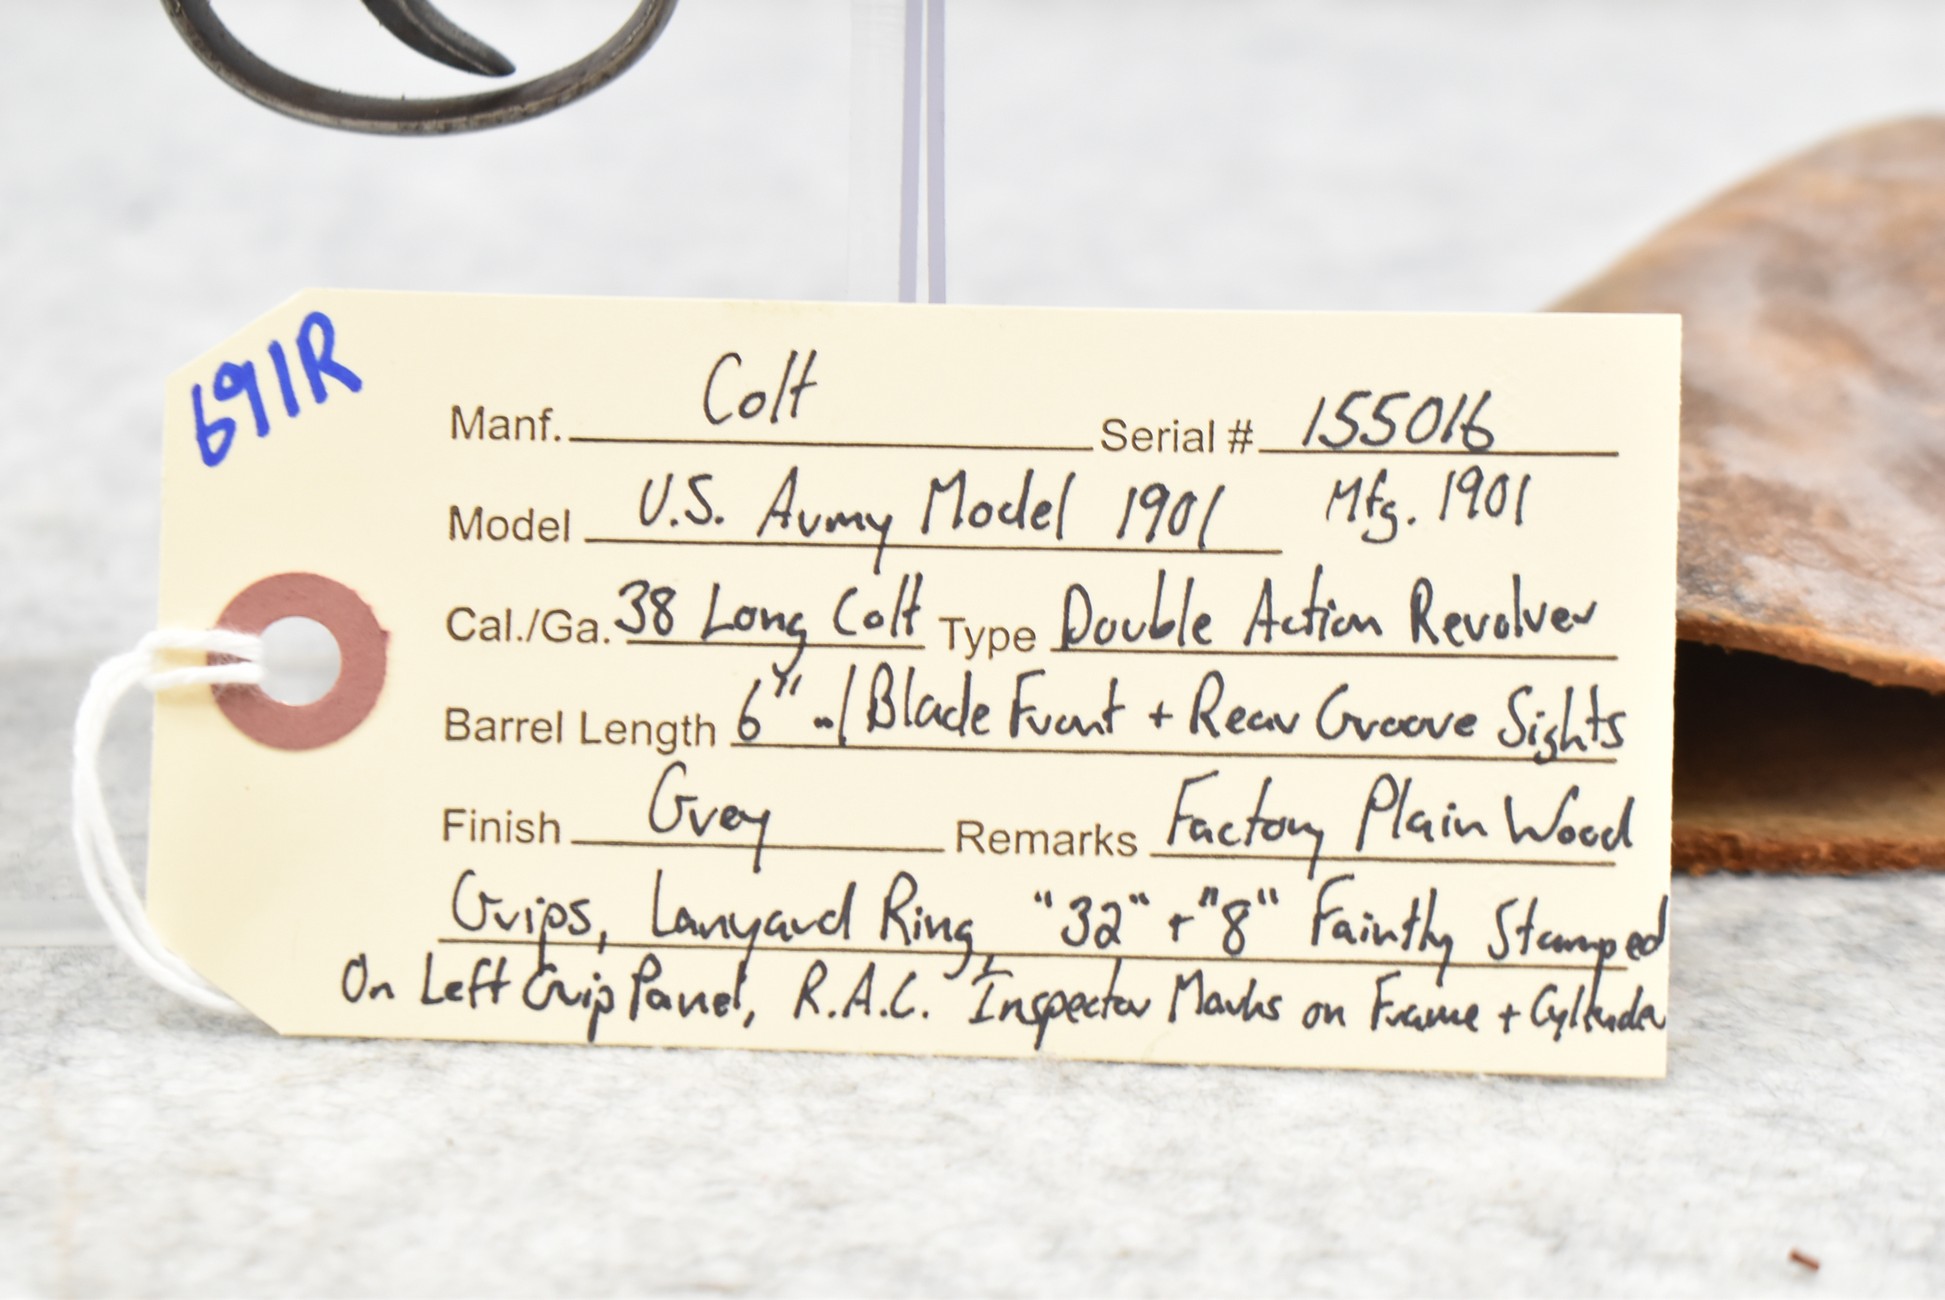 691R
Manf. Colt Serial # 155016
Model U.S. Army Model 1901 Mfg. 1901
Cal./Ga. 38 Long Colt Type Double Action Revolver
Barrel Length 6" w/ Blade Front + Rear Groove Sights
Finish Grey Remarks Factory Plain Wood
Grips, Lanyard Ring, "32" + "8" Faintly Stamped
On Left Grip Panel, R.A.C. Inspector Marks on Frame + Cylinder